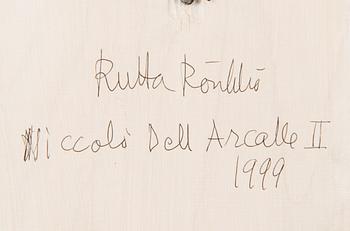 Rutta Rönkkö
Niccolò Dell Arcalle II
1999